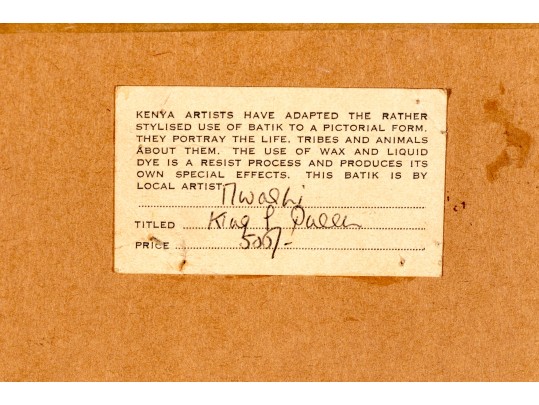 KENYA ARTISTS HAVE ADAPTED THE RATHER
STYLISED USE OF BATIK TO A PICTORIAL FORM.
THEY PORTRAY THE LIFE, TRIBES AND ANIMALS
ABOUT THEM. THE USE OF WAX AND LIQUID
DYE IS A RESIST PROCESS AND PRODUCES ITS
OWN SPECIAL EFFECTS. THIS BATIK IS BY
LOCAL ARTIST
TITLED King & Queen
PRICE 500/-